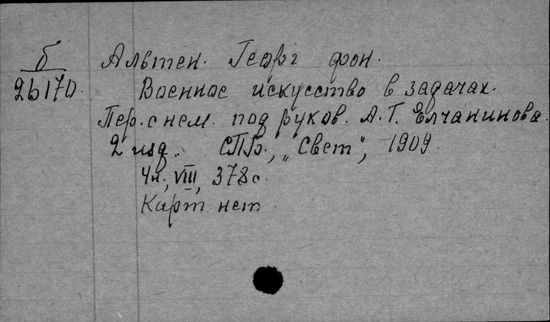 б
26170.
Альтен. Георг фон.
Военное искусство в задачах.
Пер. с нем. под руков. А.Г. Елчанинова.
2 изд. СПб., „Свет", 1909.
4н., VIII, 378 с.
Карт нет